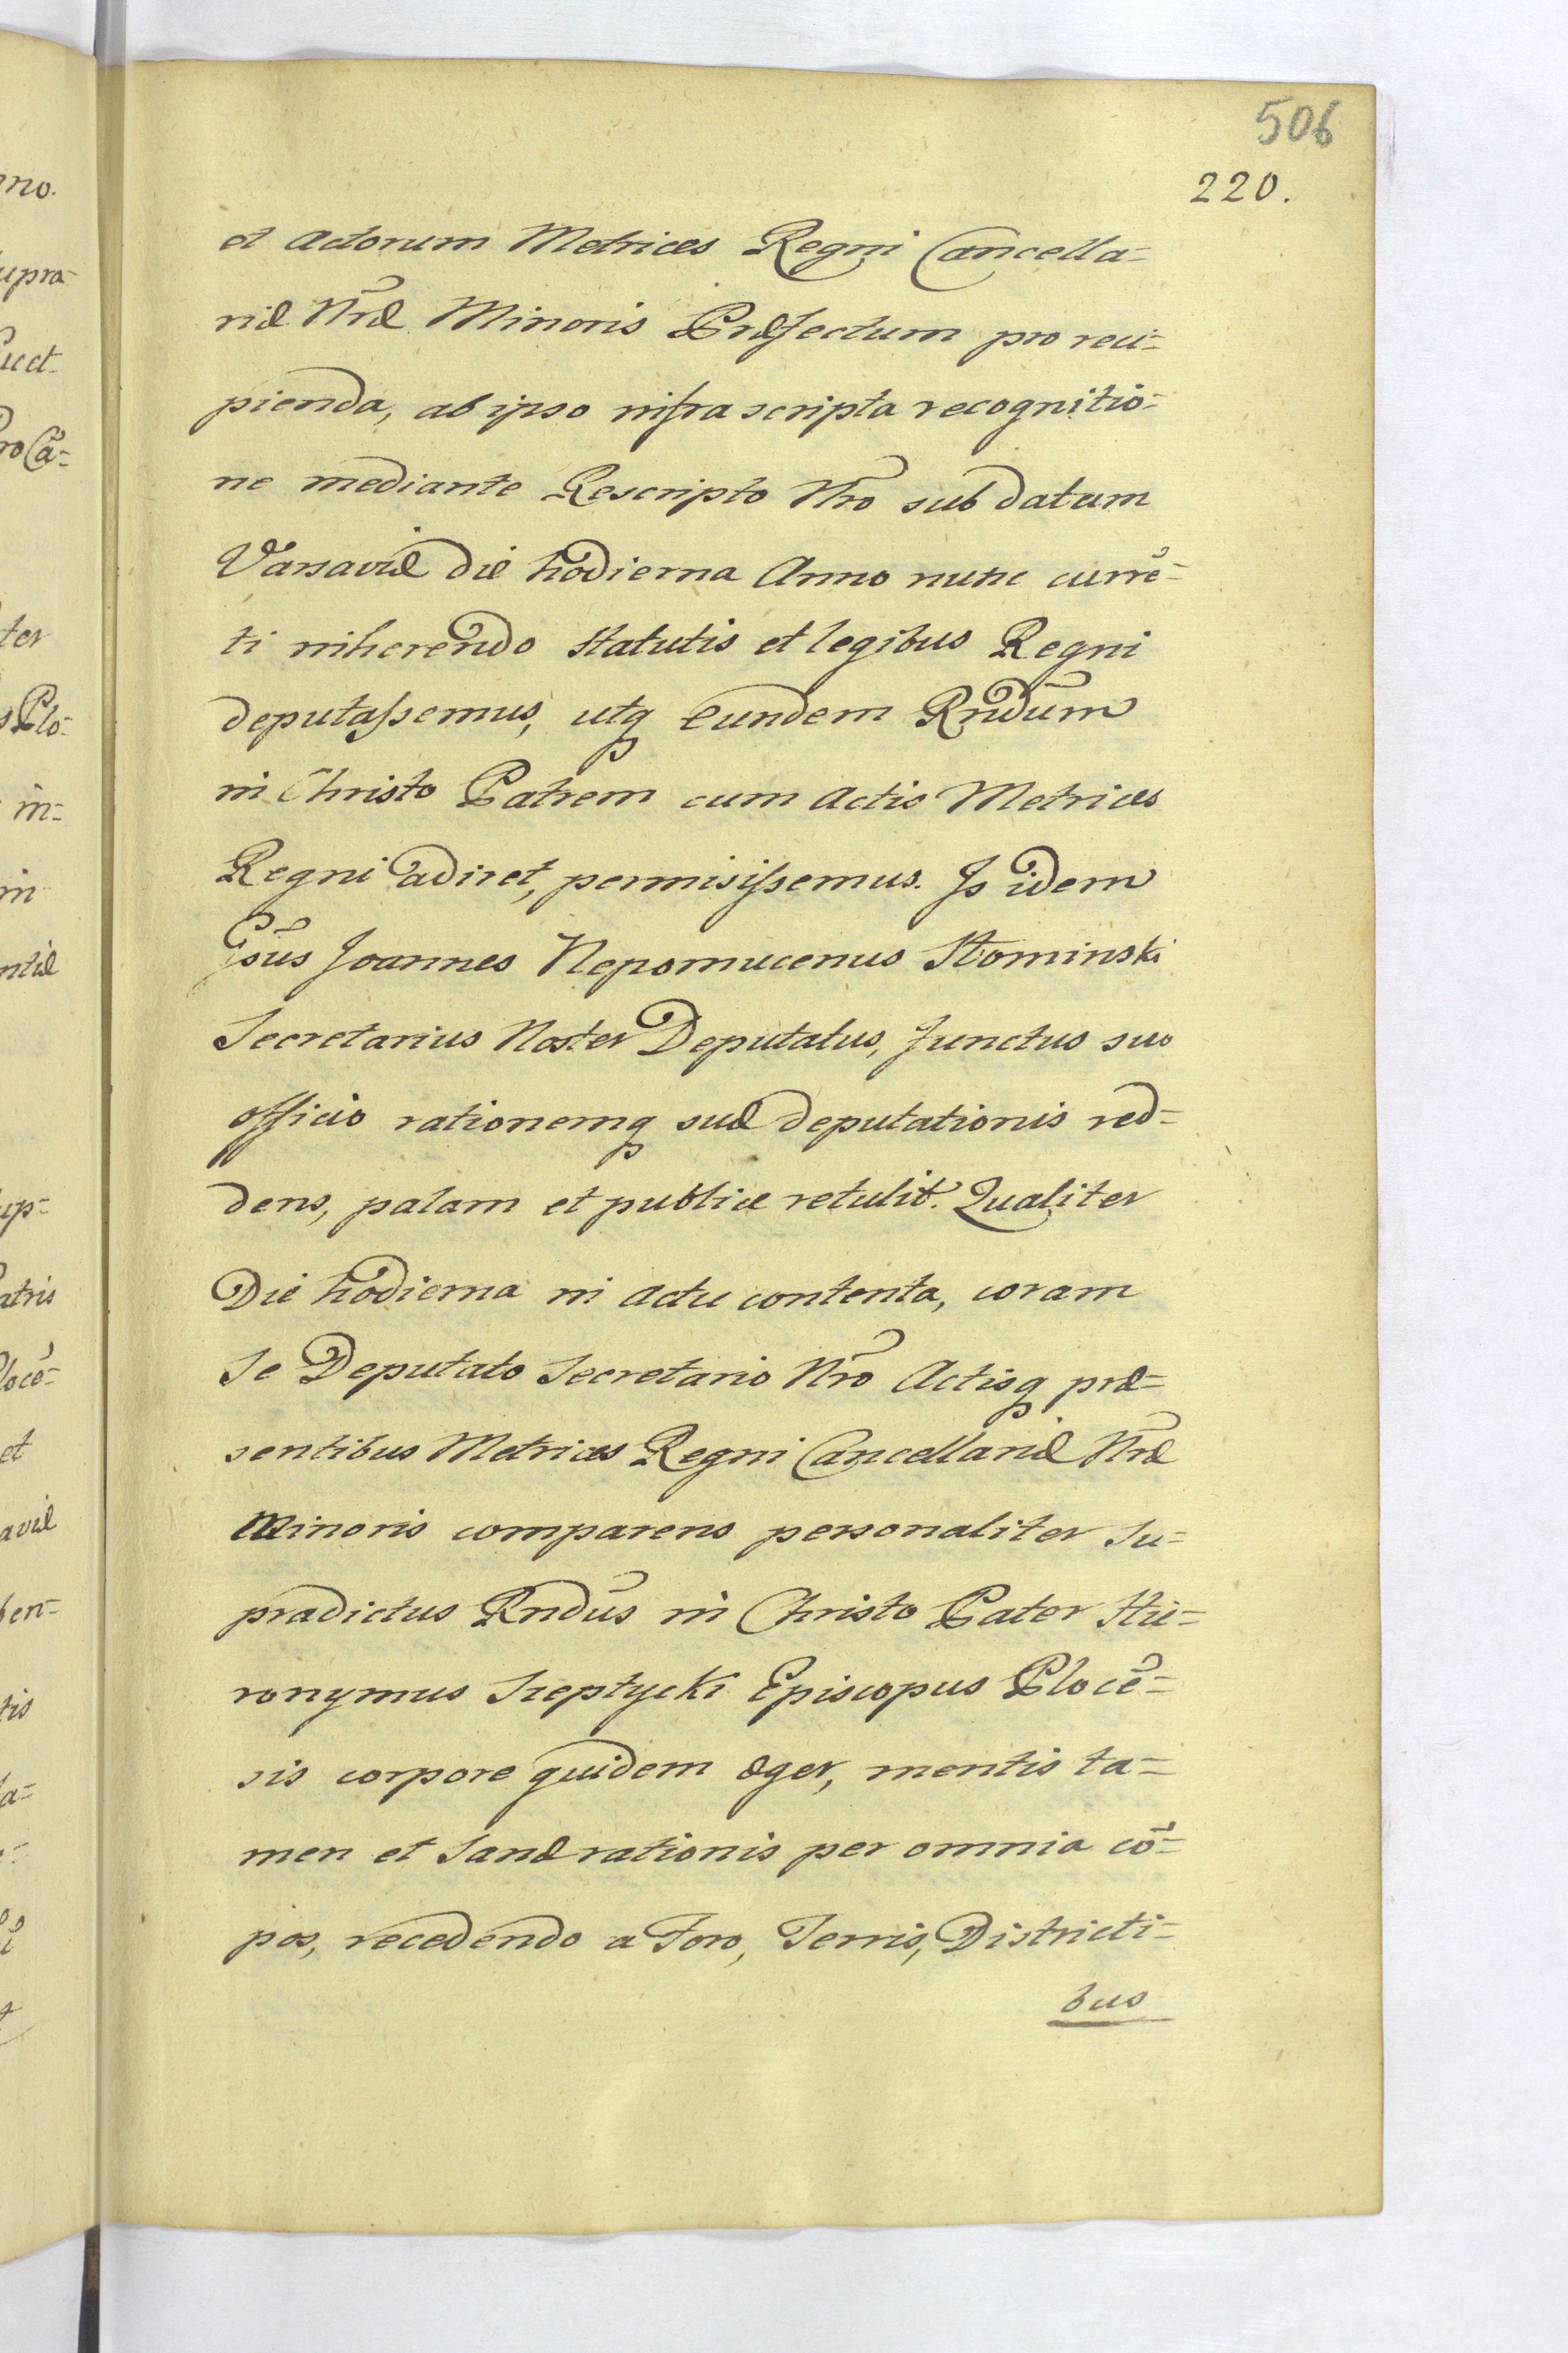 506
220.
et Actorum Metrices Regni Cancella=
riæ Nræ Minoris Præfectum pro reci=
pienda, ab ipso infra scripta recognitio=
ne mediante Rescripto Nro sub datum
Varsaviæ die hodierna Anno nunc currē=
ti inherendo Statutis et legibus Regni
deputaſsemus, utq eundem Rndum
in Christo Patrem cum Actis Metrices
Regni adiret, permisiſsemus. Is idem
Gsūs Joannes Nepomucenus Słominski
Secretarius Noster Deputatus, functus suo
officio rationemq suæ deputationis red=
dens, palam et publice retulit. Qualiter
Die hodierna in Actu contenta, coram
Se Deputato Secretario Nro Actisq præ=
sentibus Metrices Regni Cancellariæ Nræ
Minoris comparens personaliter Su=
pradictus Rndūs in Christo Pater Hie=
ronymus Szeptycki Episcopus Plocē=
sis corpore quidem æger, mentis ta=
men et Sanæ rationis per omnia cō=
pos, recedendo a Foro, Terris, Districti=
bus
no.
upra=
ter
in=
in
ntiæ
up=
atris
locē=
et
aviæ
ben=
tis